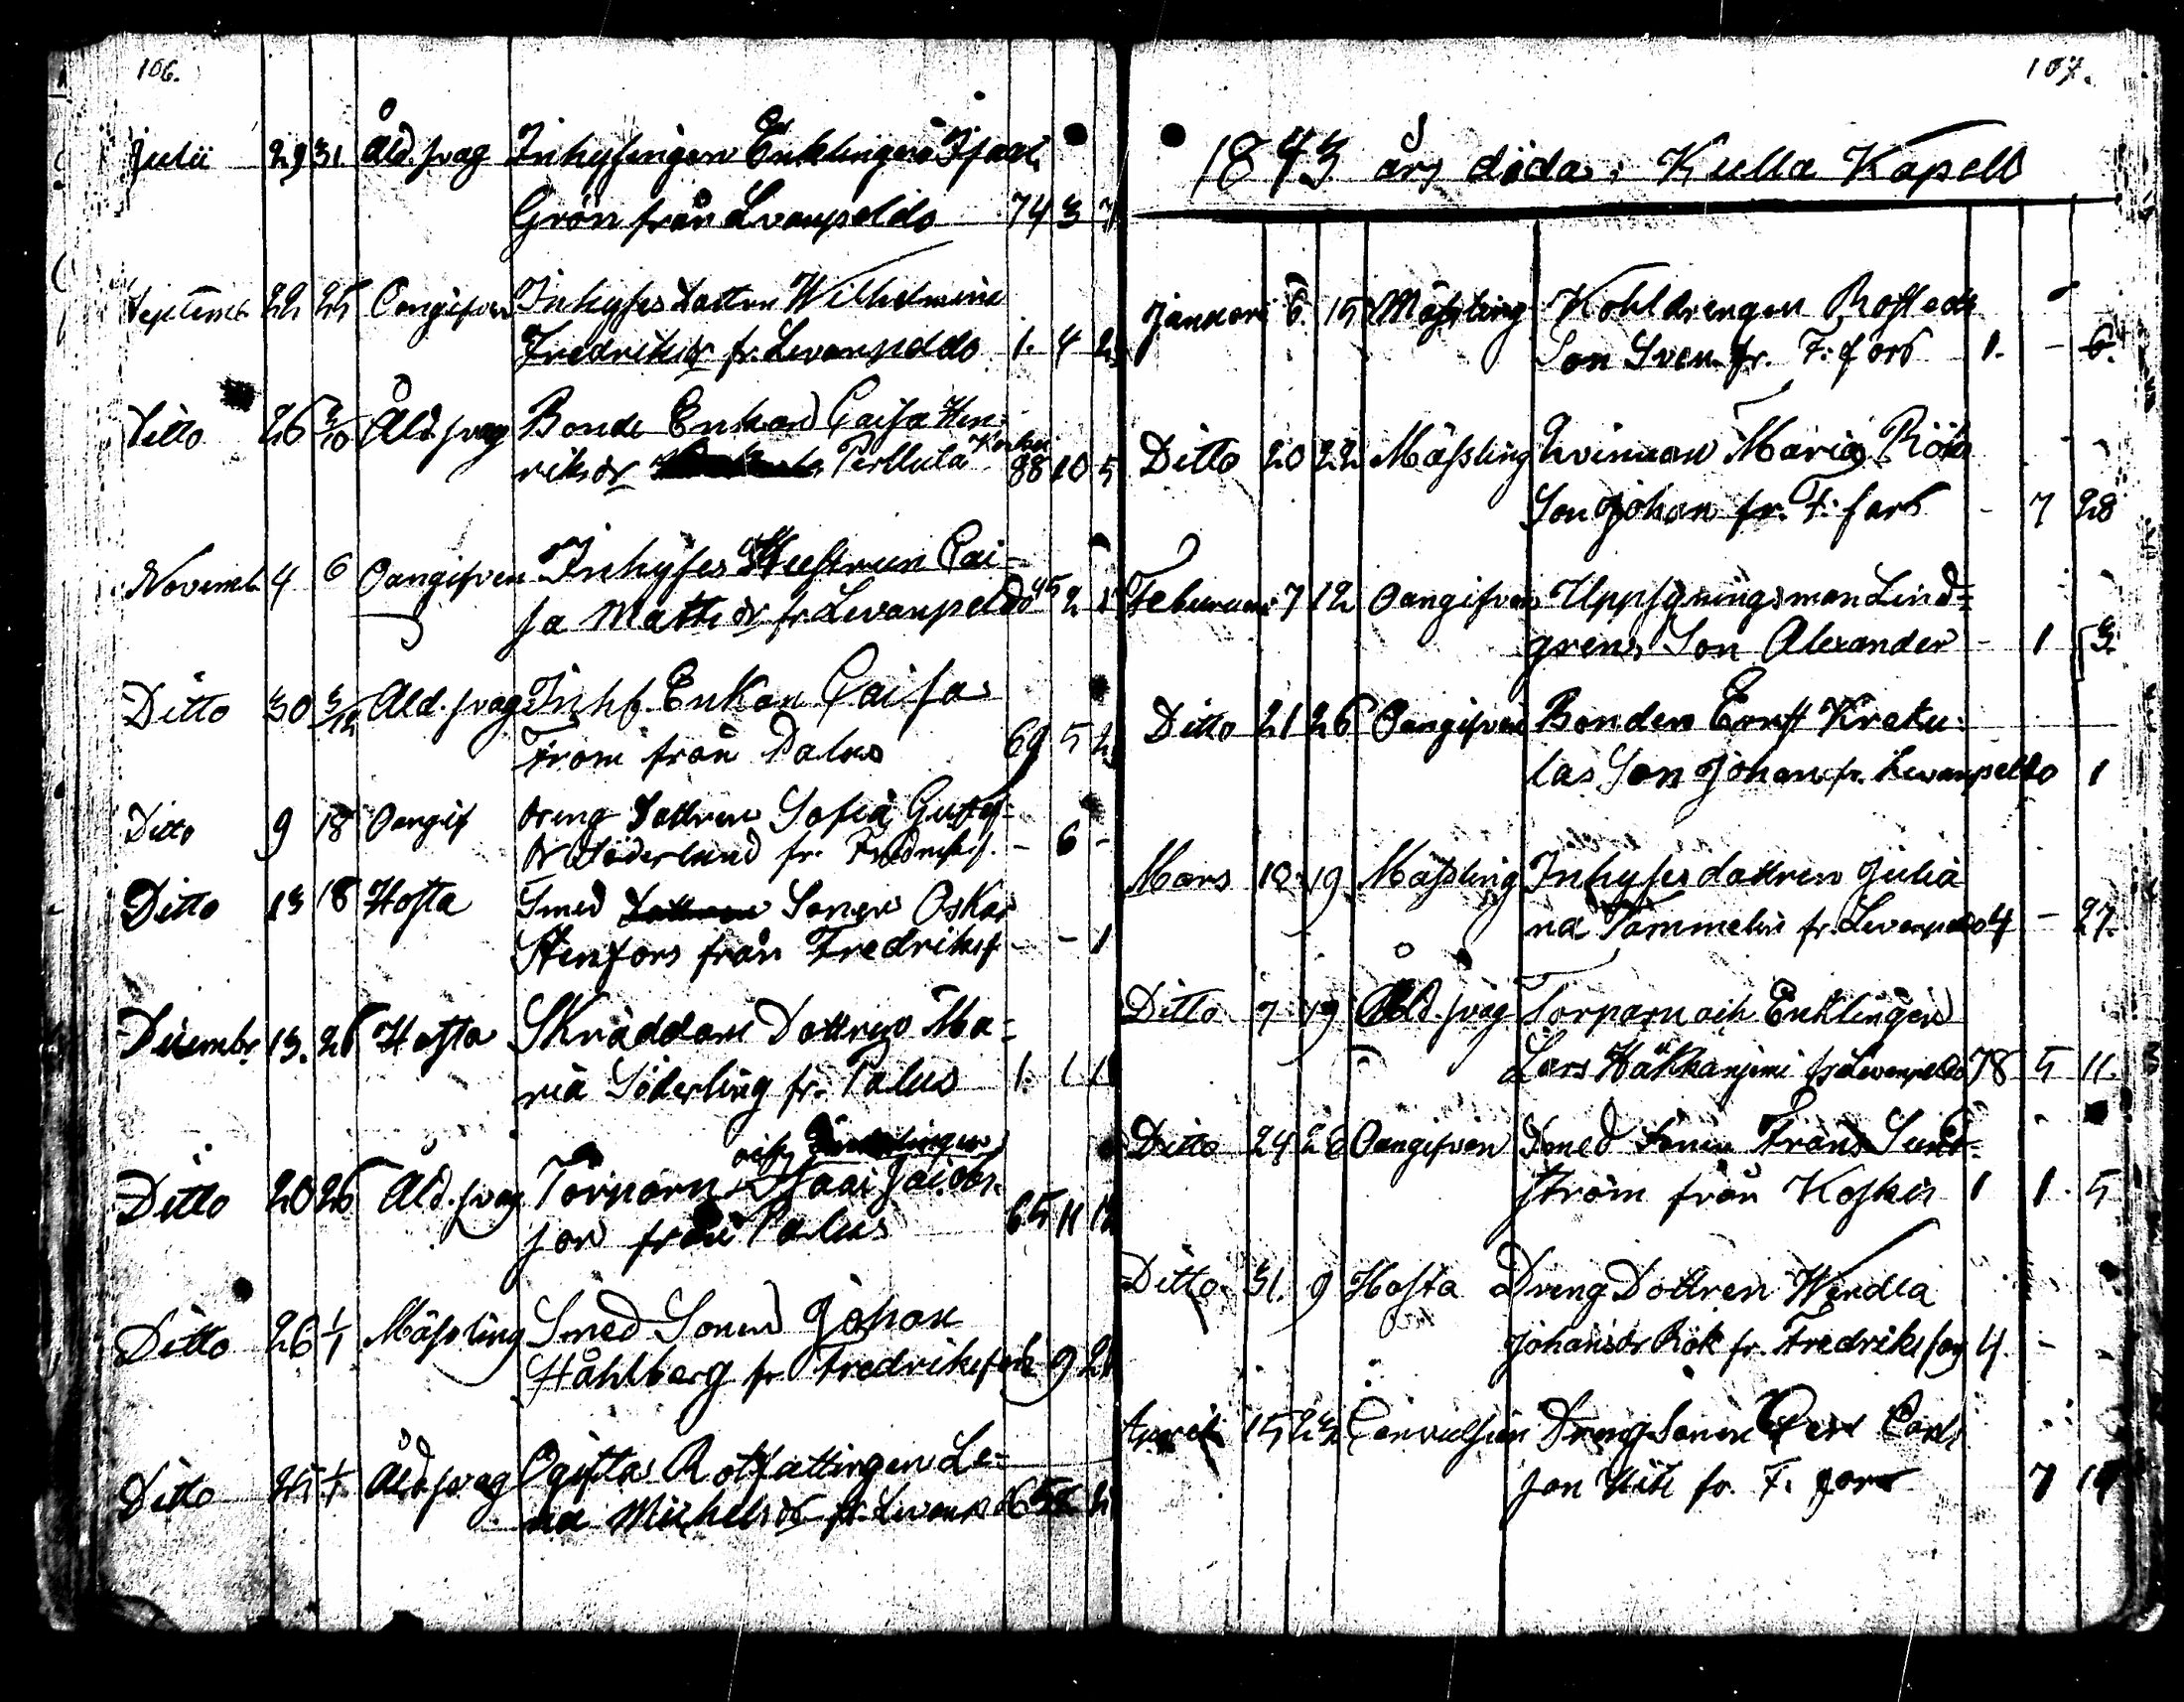 106.
Julii 29 31. Åld. svag Inhysingen Enklingen Isaac
Grön från Lvanpeldo 74 3 7
Septemb. 22 25 Oangifven Inhyses Dottren Wilhelmina
Fredriksdr fr. Levanpeldo 1. 4 2
Ditto 26 3/10 Åld. svag Bonde Enkan Caisa Hen-
riksdr Perttula 88 10 5
Novemb. 4 6 Oangifven Inhyses Hustrun Cai-
sa Mattsdr fr. Levanpeldo 45 2 1
Ditto 30 3/12 Åld. svag Inhs. Enkan Caisa
From från Palus 69 5 2
Ditto 9 18 Oangif Dreng Dottren Sofia Gustaf-
dr Söderlund fr. Fredriksf. - 6 -
Ditto 13 18 Hosta Smed Dottren Sonen Oskar
Stenfors från Fredriksf - - 1
Decembr 13. 26 Hosta Skräddare Dottren Ma-
ria Söderling fr. Palus 1. 1 1
och Enklingen
Ditto 20 26 Åld. svag Torparn Isaac Jacobs
son från Palus 65 11 1
Ditto 26 1/1 Mässling Smed Sonen Johan
Ståhlberg fr Fredriksfors 2 9 2
Ditto 25 1/1 Åld. svag Ogifta Rotfattingen Le-
na Michelsdr fr. Levanp
107.
1843 års döda i Kulla Kapell
Januari 6. 15 Mässling Kohldrengen Rostedts
Son Sven fr. F:fors 1. - 6.
Ditto 20 22 Mässling Qvinnan Maria Röks
Son Johan fr. F:fors - 7 28
Februari 7 12 Oangifven Uppsyningsman Lind-
grens Son Alexander - 1 3.
Ditto 21 26 Oangifven Bonden Ernst Kreku-
las Son Johan fr. Levanpeldo 1
Mars 12 19 Mässling Inhyses dottren Julia
na Tammelin fr. Levanpeldo 4 - 27.
Ditto 7 19 Åld. svag Torparn och Enklingen
Lars Häkkänjemi fr Levanpeldo 78 5 11.
Ditto 24 26 Oangifven Smed Sonen Frans Sund-
ström från Koskis 1 1. 5
Ditto 31. 9 Hosta Dreng Dottren Wendla
Johansdr Rök fr. Fredriksfors 4. -
April 15 23 Convulsion Dreng Sonen Carl Carls
son fr. F. fors 7